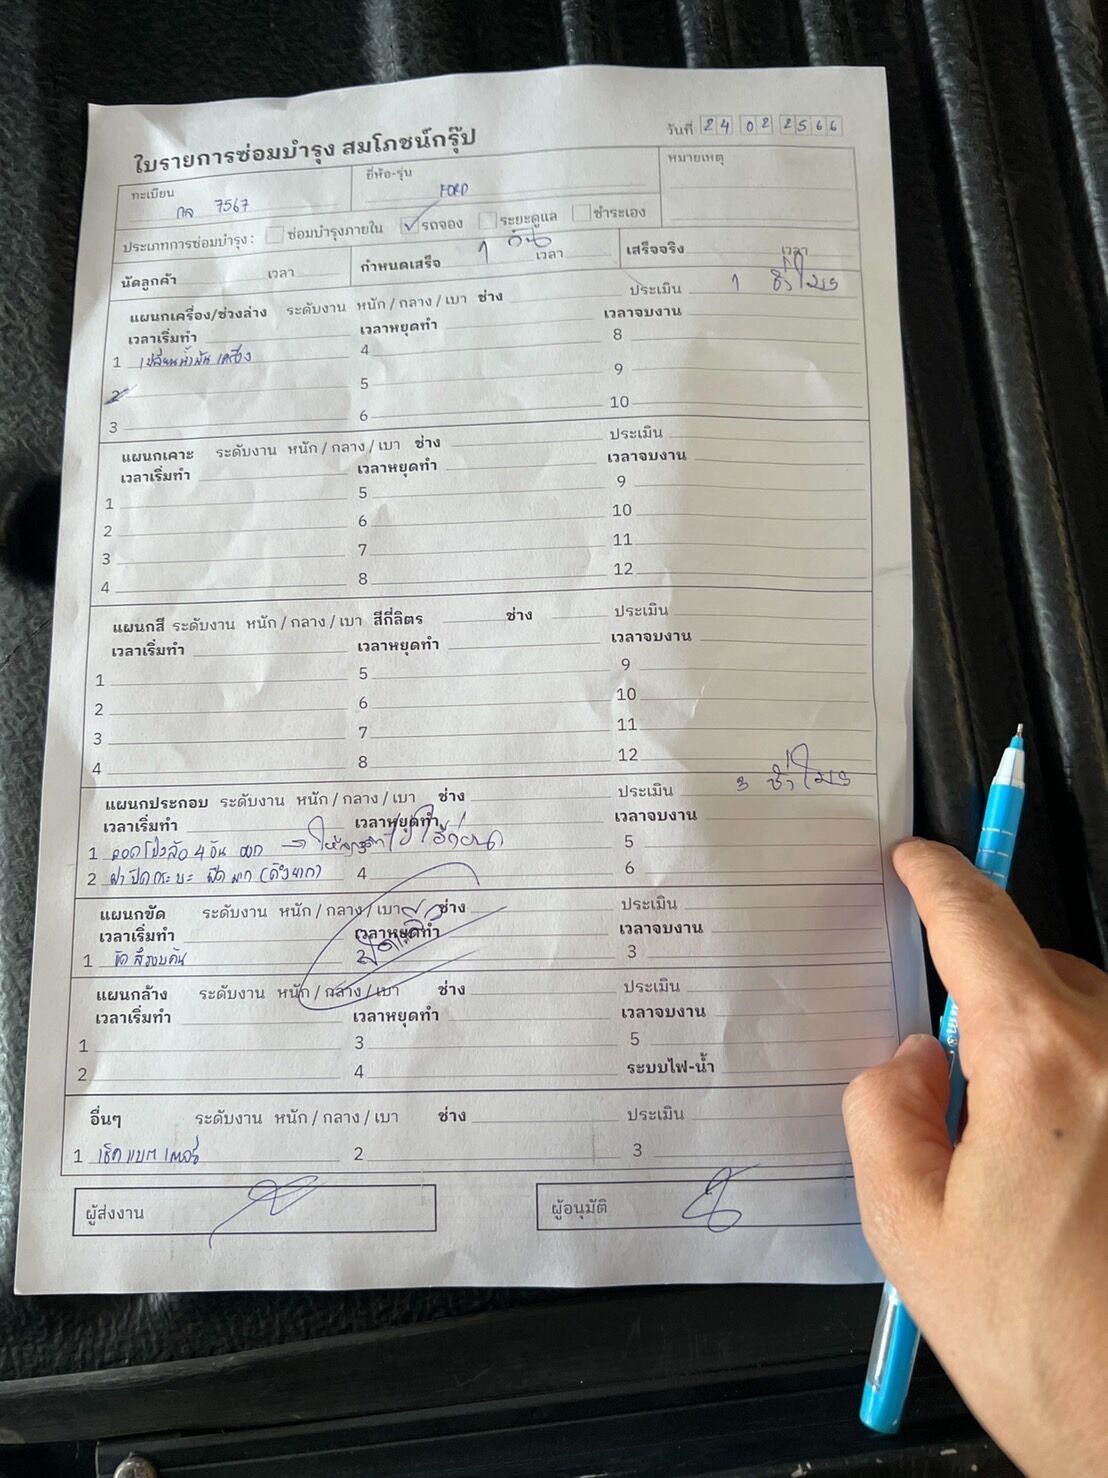 ใบรายการซ่อมบำรุง สมโภชน์กรุ๊ป
วันที่ 24 02 2566
ทะเบียน กล 7567
ยี่ห้อ-รุ่น FORD
หมายเหตุ
ประเภทการซ่อมบำรุง : ซ่อมบำรุงภายใน ✓ รถจอง ระยะดูแล ชำระเอง
นัดลูกค้า เวลา กำหนดเสร็จ 1 วัน เวลา เสร็จจริง เวลา
แผนกเครื่อง/ช่วงล่าง ระดับงาน หนัก / กลาง / เบา ช่าง ประเมิน 1 ชั่วโมง
เวลาเริ่มทำ เวลาหยุดทำ เวลาจบงาน
1 เปลี่ยนน้ำมันเครื่อง 4 8
2 5 9
3 6 10
แผนกเคาะ ระดับงาน หนัก / กลาง / เบา ช่าง ประเมิน
เวลาเริ่มทำ เวลาหยุดทำ เวลาจบงาน
1 5 9
2 6 10
3 7 11
4 8 12
แผนกสี ระดับงาน หนัก / กลาง / เบา สีกี่ลิตร ช่าง ประเมิน
เวลาเริ่มทำ เวลาหยุดทำ เวลาจบงาน
1 5 9
2 6 10
3 7 11
4 8 12
แผนกประกอบ ระดับงาน หนัก / กลาง / เบา ช่าง ประเมิน 3 ชั่วโมง
เวลาเริ่มทำ เวลาหยุดทำ เวลาจบงาน
1 ถอดโป่งล้อ 4 อัน ออก → 5
2 ฝาปิดกระบะ ฝืดมาก (ดึงยาก) 4 6
แผนกขัด ระดับงาน หนัก / กลาง / เบา ช่าง ประเมิน
เวลาเริ่มทำ เวลาหยุดทำ เวลาจบงาน
1 ขัดสีรอบคัน 2 3
แผนกล้าง ระดับงาน หนัก / กลาง / เบา ช่าง ประเมิน
เวลาเริ่มทำ เวลาหยุดทำ เวลาจบงาน
1 3 5
2 4 ระบบไฟ-น้ำ
อื่นๆ ระดับงาน หนัก / กลาง / เบา ช่าง ประเมิน
1 เช็คแบตเตอรี่ 2 3
ผู้ส่งงาน ผู้อนุมัติ